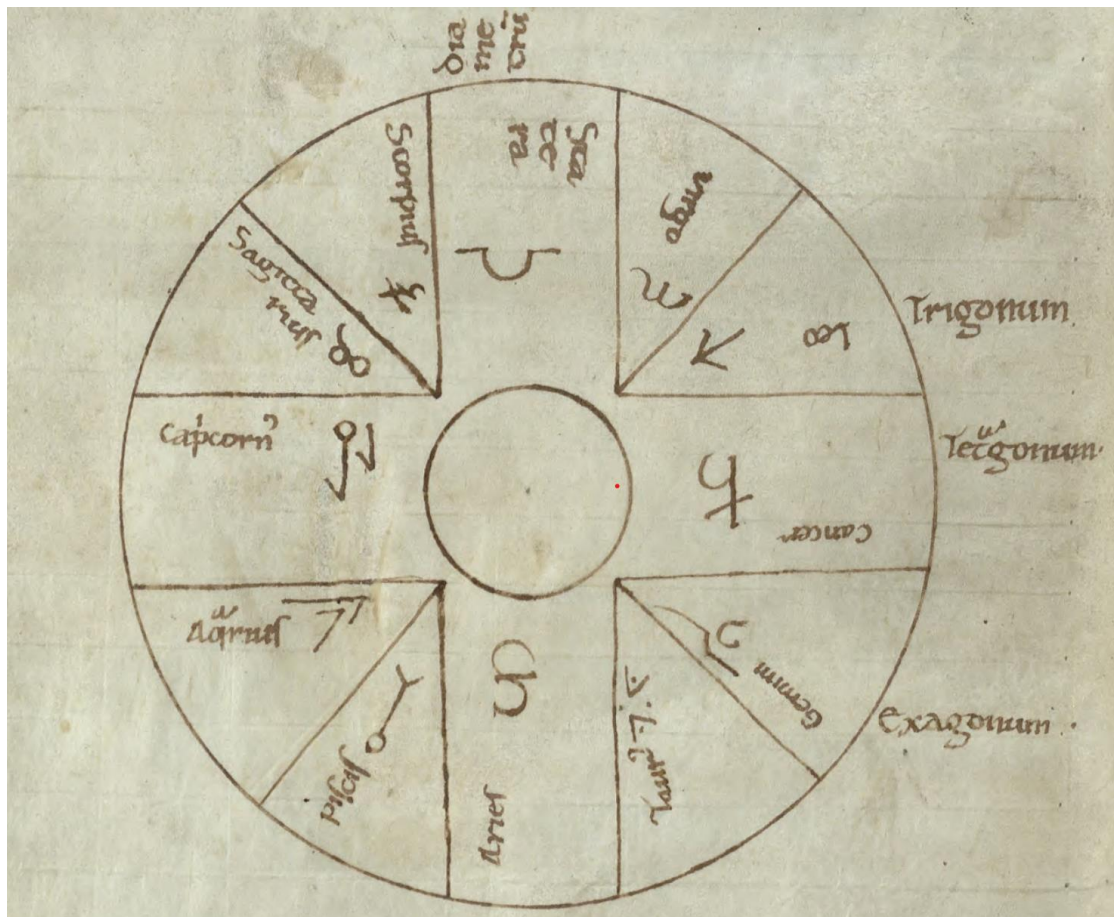 dia
me
trū
Sta
te
ra
Virgo
Leo
Trigonum
Tetᵃgonum.
Cancer
Gemini
Exagonum.
Taurꝰ
Aries
Piscis
Aqͣrius
Capͥcornꝰ
Sagitta
rius
Scorpius